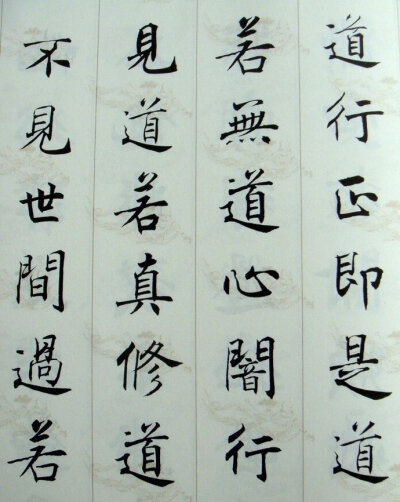 道行正即是道
若無道心闇行
見道若真修道
不見世間過若